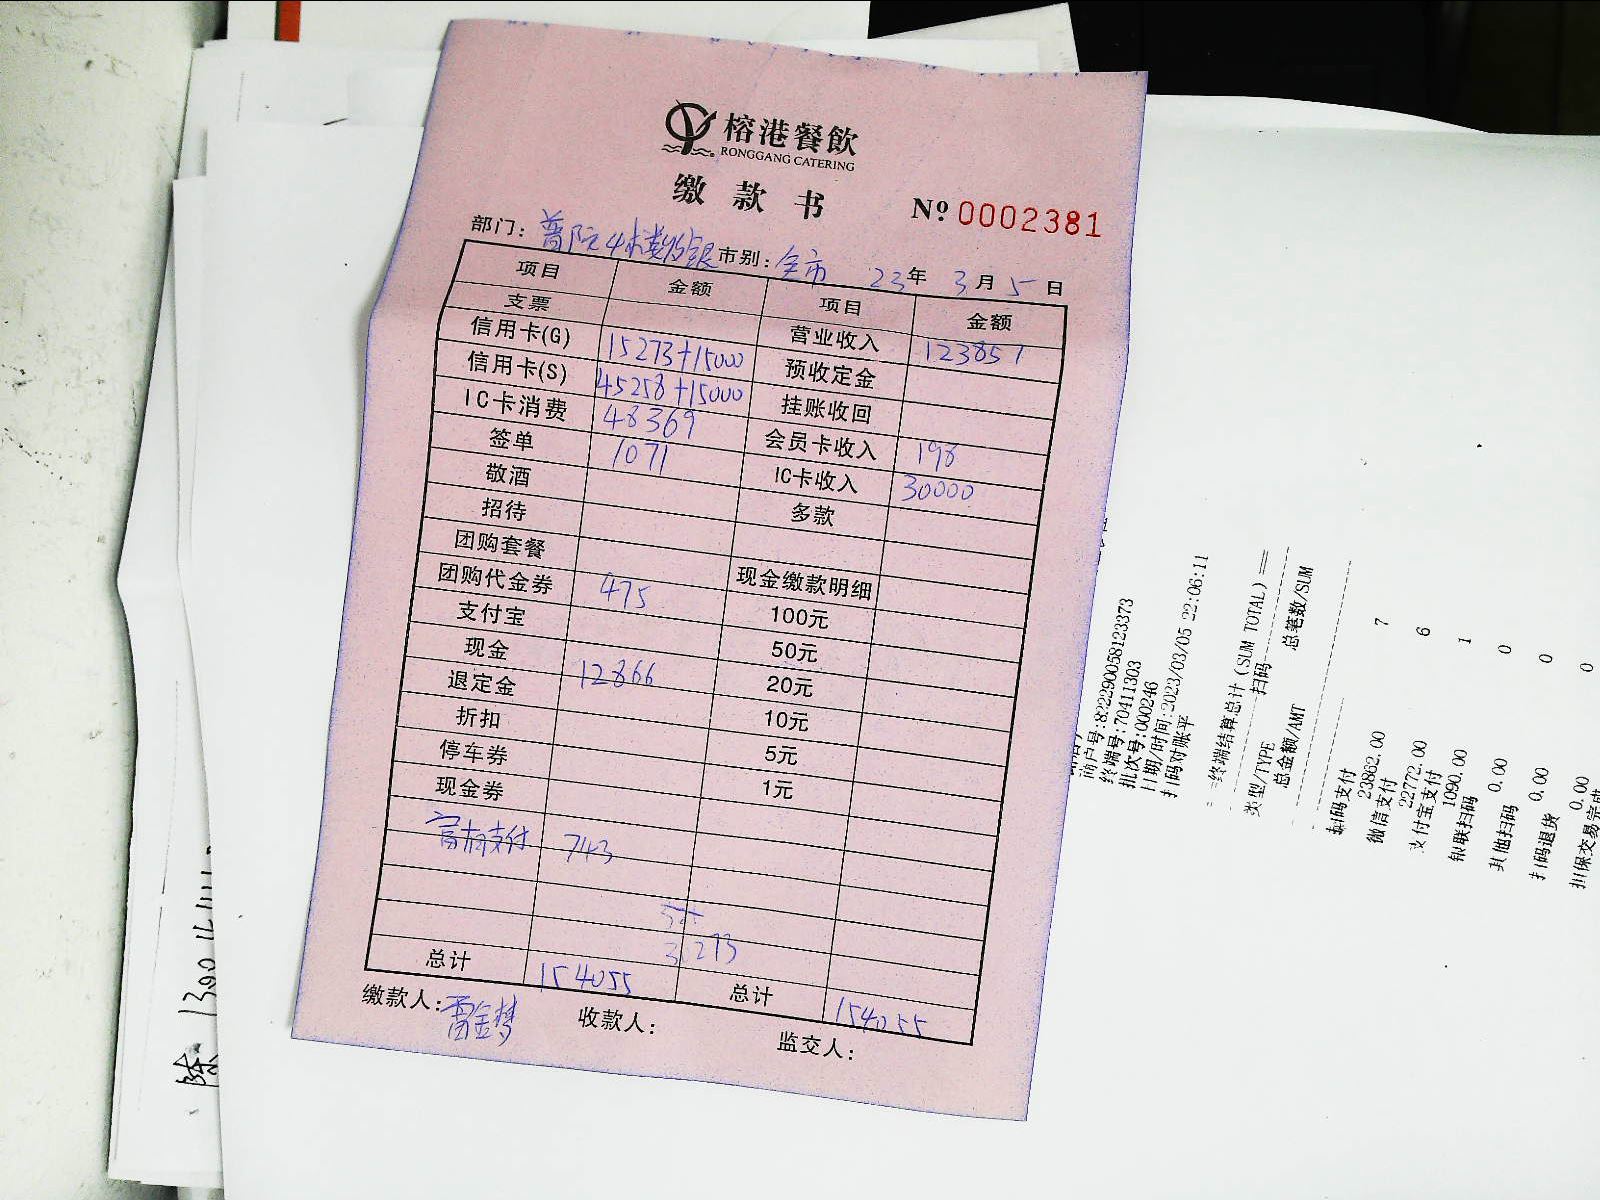 榕港餐飲
RONGGANG CATERING
缴款书 Nº 0002381
部门: 普陀4楼收银 市别: 全市 23年 3月 5日
项目 金额 项目 金额
支票 营业收入 123857
信用卡(G) 15273+15000 预收定金
信用卡(S) 45258+15000 挂账收回
IC卡消费 48369 会员卡收入 198
签单 1071 IC卡收入 30000
敬酒 多款
招待
团购套餐 现金缴款明细
团购代金券 475 100元
支付宝 50元
现金 12866 20元
退定金 10元
折扣 5元
停车券 1元
现金券
支付 743
30273
总计 154055 总计 154055
缴款人: 雷金梦 收款人: 监交人:
商户号:82229005812337​3
终端号:70411303
批次号:000246
日期/时间:2023/03/05 22:06:11
扫码对账平
终端结算总计(SUM TOTAL)==
扫码
类型/TYPE 总笔数/SUM
总金额/AMT
扫码支付 7
23862.00
微信支付 6
22772.00
支付宝支付 1
1090.00
银联扫码 0
0.00
其他扫码 0
0.00
扫码退货 0
0.00
担保交易完成